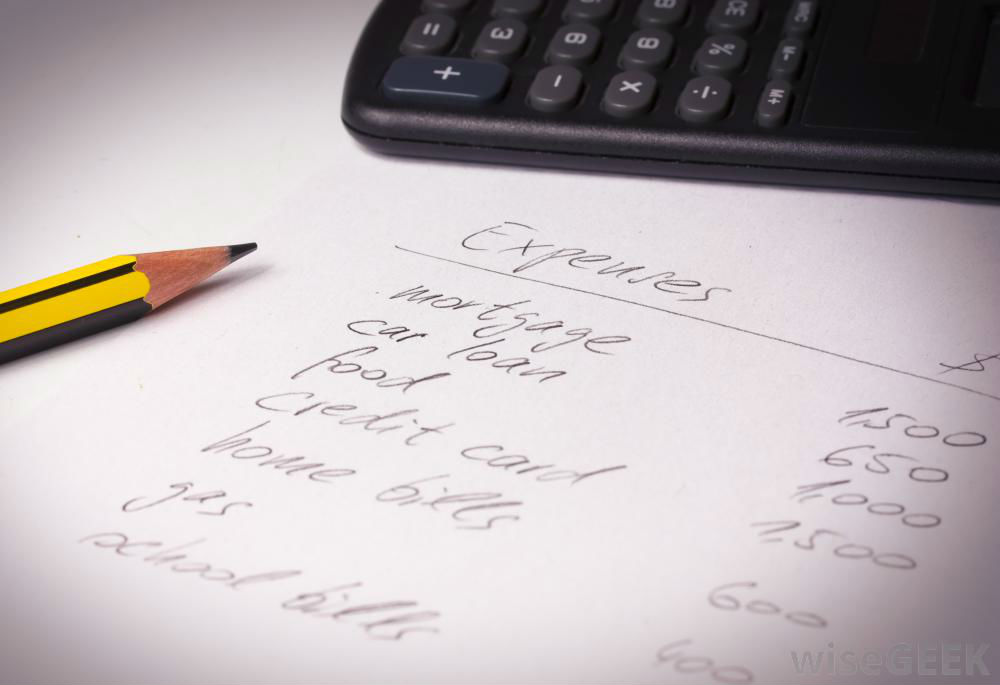 = 3 6 9 % M-
+ - × ÷ M+
CE MRC
Expenses
$
mortgage 1,500
car loan 650
food 1,000
credit card 1,500
home bills 600
gas 400
school bills
wiseGEEK